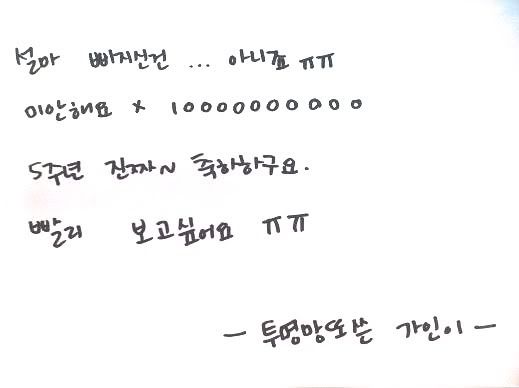 설마 삐지신건 ... 아니죠 ㅠㅠ
미안해요 x 10000000000
5주년 진짜~ 축하하구요.
빨리 보고싶어요 ㅠㅠ
- 투명망또쓴 가인이 -